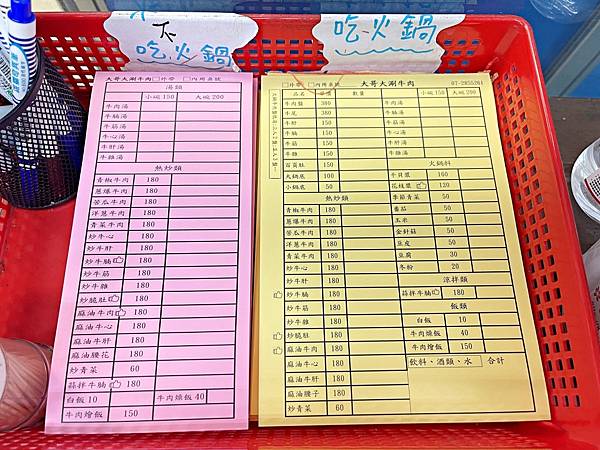 不
吃火鍋
吃火鍋
大哥大涮牛肉 □外帶 □內用桌號
湯類
小碗150 大碗200
牛肉湯
牛腩湯
牛筋湯
牛心湯
牛肝湯
牛雜湯
熱炒類
青椒牛肉 180
蔥爆牛肉 180
苦瓜牛肉 180
洋蔥牛肉 180
青菜牛肉 180
炒牛心 180
炒牛肝 180
炒牛腩 180
炒牛筋 180
炒牛雜 180
炒脆肚 180
麻油牛肉 180
麻油牛心 180
麻油牛肝 180
麻油腰花 180
炒青菜 60
蒜拌牛腩 180
白飯10 牛肉燥飯40
牛肉燴飯 150
□外帶 □內用桌號 大哥大涮牛肉
品名 數量 小碗150 大碗200
牛肉盤 380 牛肉湯
牛尾 380 牛腩湯
牛腩 380 牛筋湯
牛筋 380 牛心湯
牛雜 380 牛肝湯
百頁肚 150 牛雜湯
大鍋底 100 火鍋料
小鍋底 50 干貝漿 160
花枝漿 120
熱炒類 季節青菜 50
青椒牛肉 180 番茄 50
蔥爆牛肉 180 玉米 50
苦瓜牛肉 180 金針菇 50
洋蔥牛肉 180 豆皮 50
青菜牛肉 180 豆腐 30
炒牛心 180 冬粉 20
炒牛肝 180 涼拌類
炒牛腩 180 蒜拌牛腩 180
炒牛筋 180 飯類
炒牛雜 180 白飯 10
炒脆肚 180 牛肉燥飯 40
麻油牛肉 180 牛肉燴飯 150
麻油牛心 180 飲料、酒類、水 合計
麻油牛肝 180
麻油腰子 180
炒青菜 60